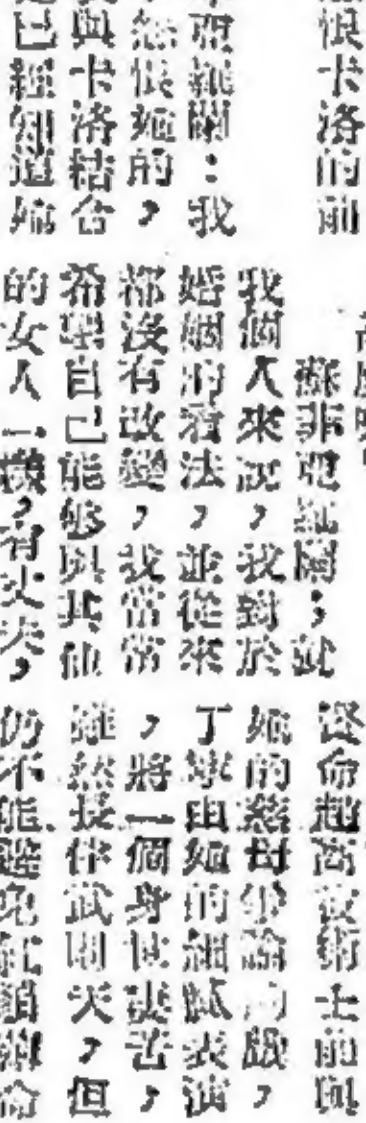 恨卡洛的前
亞羅蘭：我
怨恨她的，
與卡洛結合
已經知道她
蘇非亞羅蘭；就
我個人來說，我對於
婚姻的看法，並從來
都沒有改變，我常常
希望自己能够與其他
的女人一樣，有丈夫，
督命趙高被術士前與
她的慈母爭論的戲，
丁寧由她的細膩表演
，將一個身世淒苦，
雖然長伴武則天，但
仍不能避免紅顏薄命